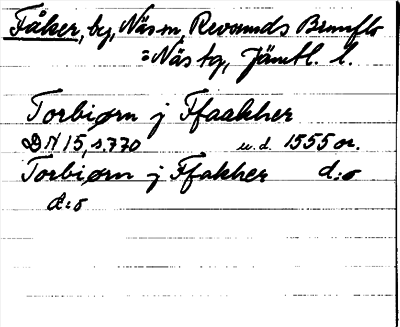 Fåker, by, Näs sn, Revsunds Brunflo
= Näs tg, Jämtl. l.
Torbiørn j Ffaakher
DN 15, s. 770 u.d. 1555 or.
Torbiørn j Ffakher d:o
d:o